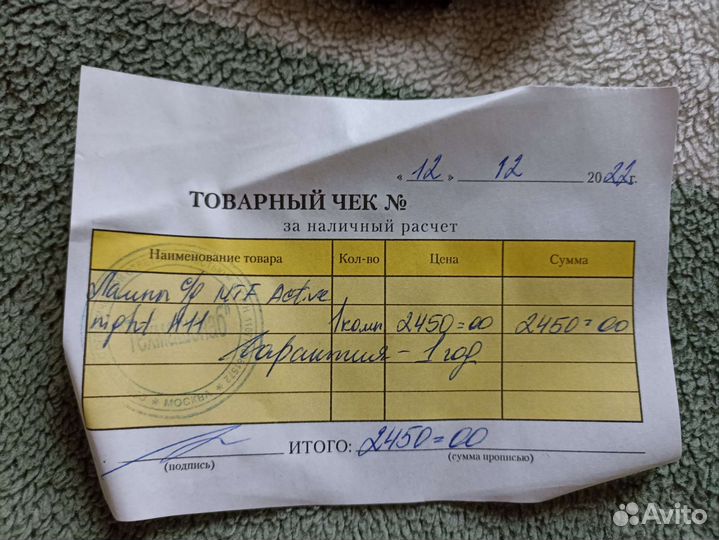 « 12 » 12 2022г.
ТОВАРНЫЙ ЧЕК №
за наличный расчет
Наименование товара Кол-во Цена Сумма
Лампы с/д MTF Active
night H11 1 комп 2450=00 2450=00
Гарантия - 1 год
МОСКВА
ИТОГО: 2450=00
(подпись) (сумма прописью)
Avito